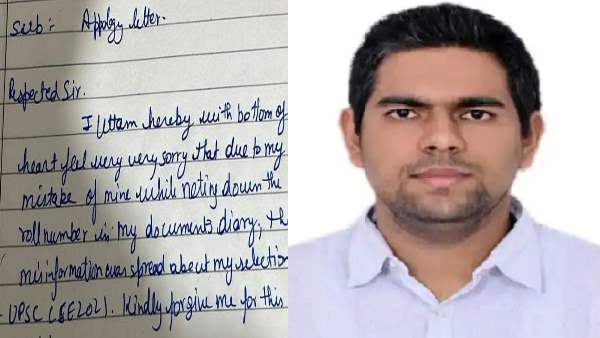 Sub:- Appology letter.
Respected Sir.
I Uttam hereby with bottom of
heart feel very very sorry that due to my
mistake of mine while noting down the
roll number in my documents diary, th
misinformation was spread about my selection
UPSC (SE202). Kindly forgive me for this